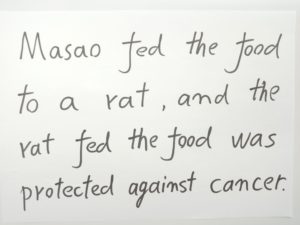 Masao fed the food
to a rat, and the
rat fed the food was
protected against cancer.